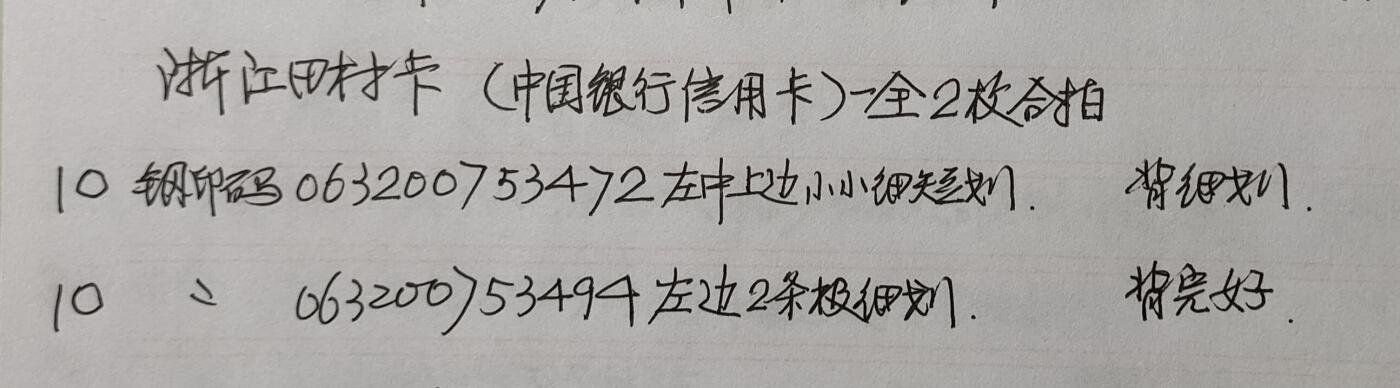 浙江田村卡（中国银行信用卡）-全2枚合拍
10 钢印码063200753472左中上边小小细短划. 背细划.
10 〃 063200753494左边2条极细划. 背完好.